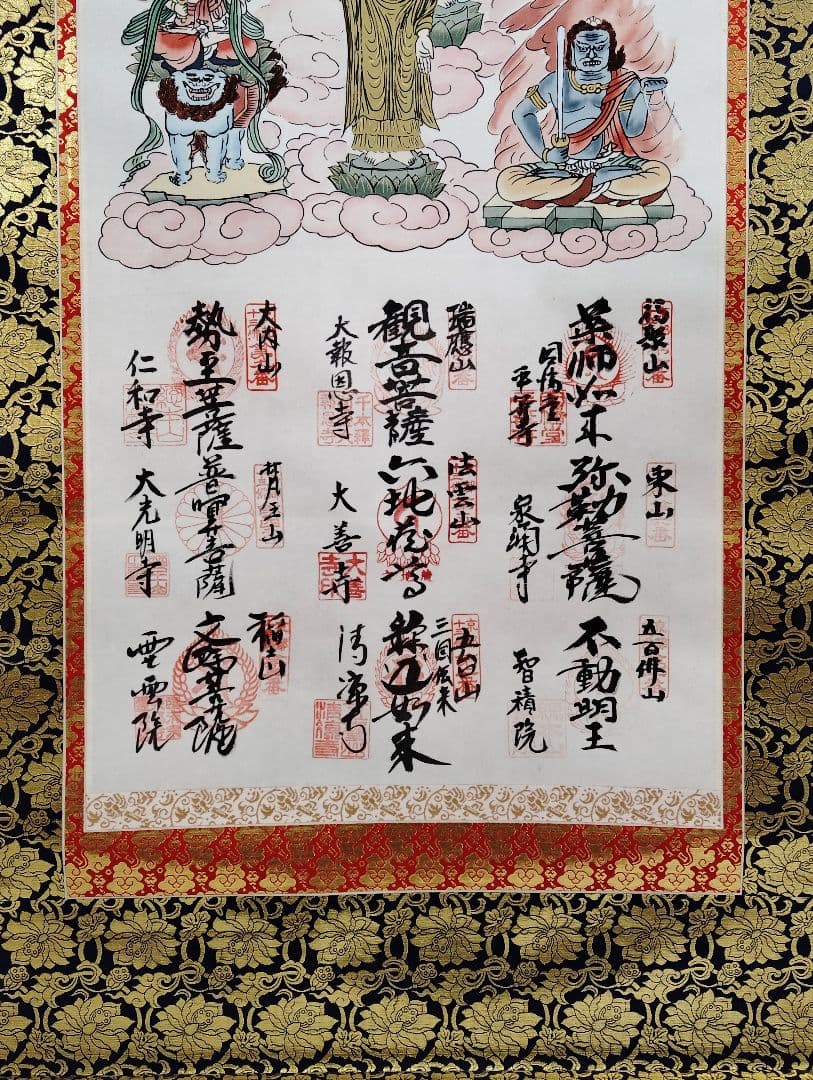 福聚山
薬師如来
因幡堂
平等寺
瑞應山
観音菩薩
大報恩寺
大内山
勢至菩薩
仁和寺
東山
弥勒菩薩
泉涌寺
法雲山
六地蔵尊
大善寺
普賢菩薩
大光明寺
五百佛山
不動明王
智積院
五台山
三国伝来
釈迦如来
清凉寺
文殊菩薩
霊雲院